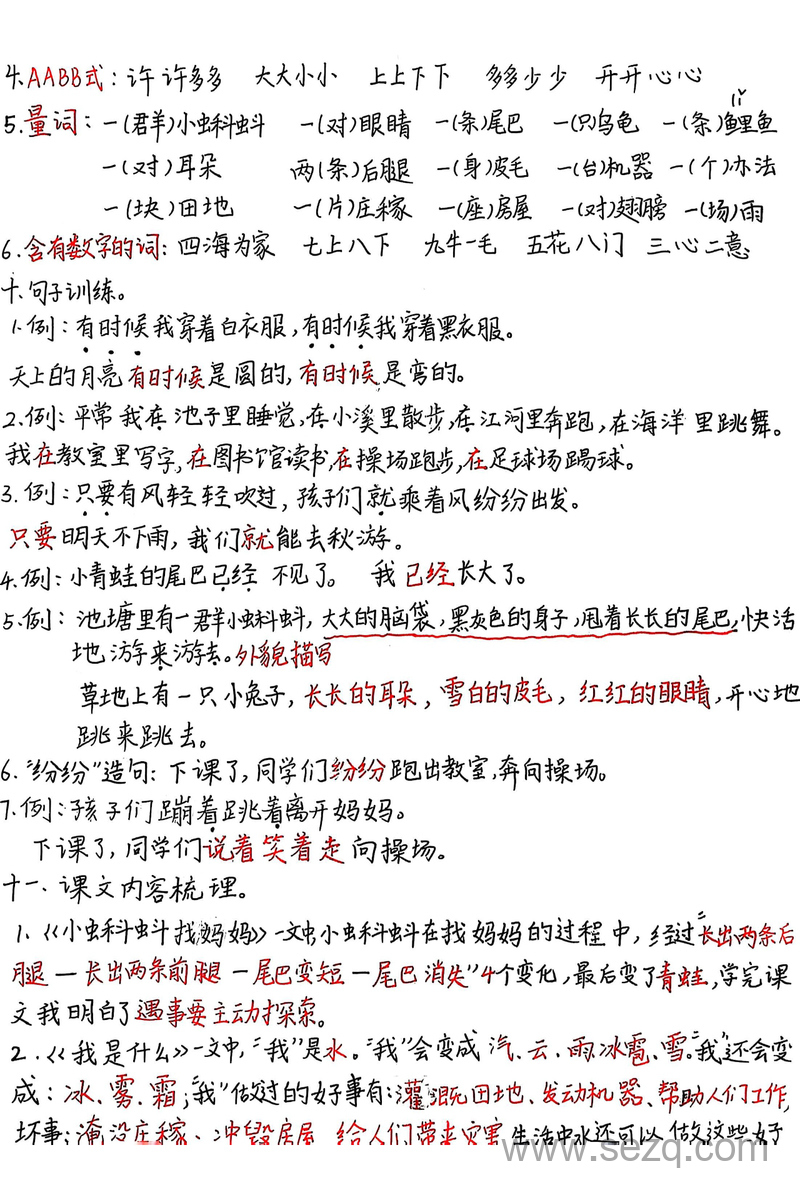 4.AABB式：许许多多 大大小小 上上下下 多多少少 开开心心
5.量词：一(群)小蝌蚪 一(对)眼睛 一(条)尾巴 一(只)乌龟 一(条)鲤鱼
lǐ
一(对)耳朵 两(条)后腿 一(身)皮毛 一(台)机器 一(个)办法
一(块)田地 一(片)庄稼 一(座)房屋 一(对)翅膀 一(场)雨
6.含有数字的词：四海为家 七上八下 九牛一毛 五花八门 三心二意
十.句子训练。
1.例：有时候我穿着白衣服，有时候我穿着黑衣服。
天上的月亮有时候是圆的，有时候是弯的。
2.例：平常我在池子里睡觉，在小溪里散步，在江河里奔跑，在海洋里跳舞。
我在教室里写字，在图书馆读书，在操场跑步，在足球场踢球。
3.例：只要有风轻轻吹过，孩子们就乘着风纷纷出发。
只要明天不下雨，我们就能去秋游。
4.例：小青蛙的尾巴已经不见了。 我已经长大了。
5.例：池塘里有一群小蝌蚪，大大的脑袋，黑灰色的身子，甩着长长的尾巴，快活
地游来游去。外貌描写
草地上有一只小兔子，长长的耳朵，雪白的皮毛，红红的眼睛，开心地
跳来跳去。
6."纷纷"造句：下课了，同学们纷纷跑出教室，奔向操场。
7.例：孩子们蹦着跳着离开妈妈。
下课了，同学们说着笑着走向操场。
十一.课文内容梳理。
1.《小蝌蚪找妈妈》一文中，小蝌蚪在找妈妈的过程中，经过"长出两条后
腿一长出两条前腿一尾巴变短一尾巴消失"4个变化，最后变了青蛙，学完课
文我明白了遇事要主动探索。
2.《我是什么》一文中，"我"是水。"我"会变成汽、云、雨、冰雹、雪。"我"还会变
成：冰、雾、霜；"我"做过的好事有：灌溉田地、发动机器、帮助人们工作，
坏事：淹没庄稼、冲毁房屋、给人们带来灾害 生活中水还可以做这些好
www.sezq.com